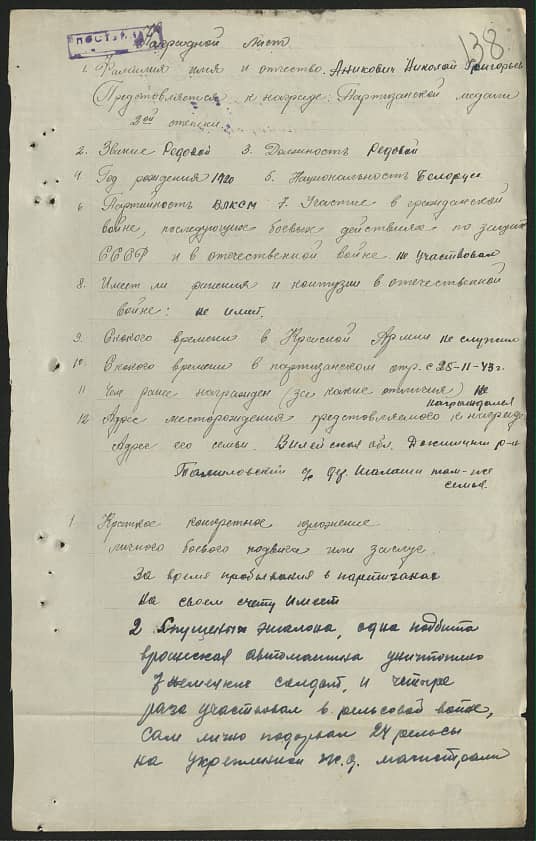 138
Наградной Лист
1. Фамилия имя и отчество Николай Григорьев
Представляется к награде: Партизанской медали
2ой степени
2. Звание Редовой 3. Должность Редовой
4 Год рождения 1920 5. Национальность Белорус
6 Партийность ВЛКСМ 7. Участие в гражданской
войне, последующих боевых действиях по защите
СССР и в отечественной войне не участвовал
8. Имеет ли ранения и контузии в отечественной
войне: не имеет.
9. Скокого времени в Красной Армии не служил
10. Скокого времени в партизанском отр. с 25-II-43 г.
11 Чем ранее награжден (за какие отличия) не
награждался
12. Адрес месторождения представляемого к награде
Адрес его семьи. Вилейская обл. Докшицкий р-н
с/с дер. Шалаши там-же
семья.
1 Краткое конкретное изложение
личного боевого подвига или заслуг.
За время пребывания в партизанах
на своем счету имеет
2 спущеных эшалона, одна подбита
вражеская автомашина уничтожено
7 немецких солдат, и четыре
раза участвовал в рельсовой войне,
Сам лично подорвал 24 рельсы
на укрепленной ж.д. магистрали